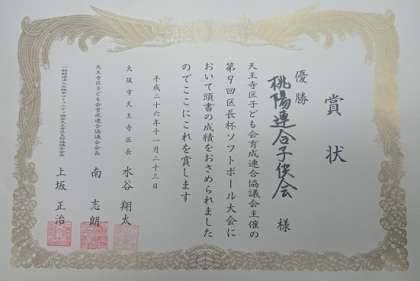 賞状
優勝
桃陽連合子供会 様
天王寺区子ども会育成連合協議会主催の
第9回区長杯ソフトボール大会に
おいて頭書の成績をおさめられました
のでここにこれを賞します
平成二十六年十一月二十三日
大阪市天王寺区長 水谷 翔太
天王寺区子ども会育成連合協議会会長 南 志朗
上坂 正治